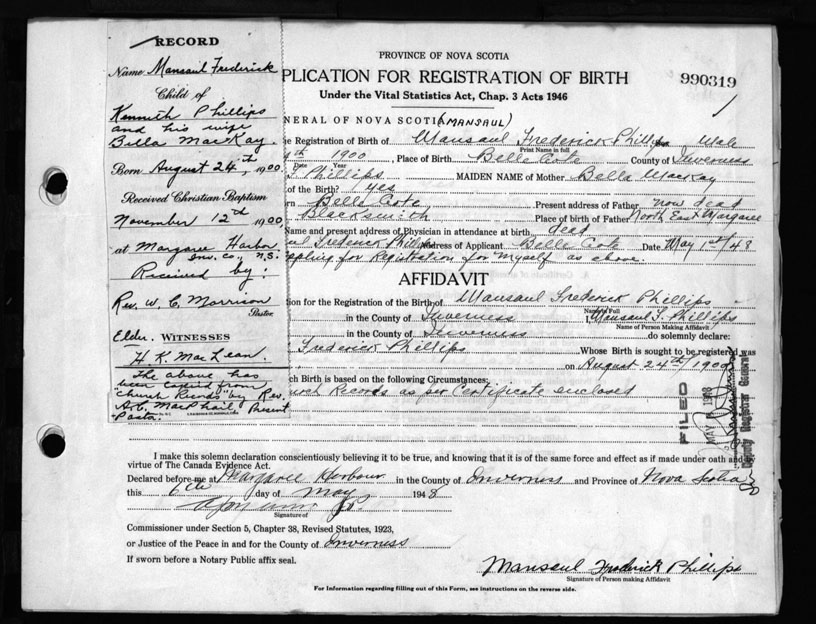 RECORD
Name Mansaul Frederick
Child of
Kenneth Phillips
and his wife
Bella MacKay.
Born August 24th, 1900
Received Christian Baptism
November 12th 1900,
at Margaree Harbor
Inv. Co., N.S.
Received by:
Rev. W. C. Morrison
Pastor.
Elder. WITNESSES
H. K. MacLean.
The above has
been copied from
"Church Records" by Rev.
A. D. MacPhail, Present
Pastor.
PROVINCE OF NOVA SCOTIA
PLICATION FOR REGISTRATION OF BIRTH
990319
Under the Vital Statistics Act, Chap. 3 Acts 1946
NERAL OF NOVA SCOTIA (MANSAUL)
e Registration of Birth of Mansaul Frederick Phillips Male
Print Name in full
th 1900, Place of Birth Belle Cote County of Inverness
Date Year
Phillips MAIDEN NAME of Mother Bella MacKay
of the Birth? Yes
rn Belle Cote Present address of Father now dead
Blacksmith Place of birth of Father North East Margaree
Name and present address of Physician in attendance at birth dead
ul Frederick Phillips Address of Applicant Belle Cote Date May 1st/48
pplying for Registration for Myself as above.
AFFIDAVIT
tion for the Registration of the Birth of Mansaul Frederick Phillips
Name in Full
in the County of Inverness I, Mansaul F. Phillips
Name of Person Making Affidavit
in the County of Inverness do solemnly declare:
Frederick Phillips Whose Birth is sought to be registered was
on August 24th/1900
ch Birth is based on the following Circumstances:
urch Records as per Certificate enclosed
FILED
MAY
Deputy Registrar General
I make this solemn declaration conscientiously believing it to be true, and knowing that it is of the same force and effect as if made under oath and by
virtue of The Canada Evidence Act.
Declared before me at Margaree Harbour in the County of Inverness and Province of Nova Scotia
this 6th day of May 1948
Signature of
Commissioner under Section 5, Chapter 38, Revised Statutes, 1923,
or Justice of the Peace in and for the County of Inverness
If sworn before a Notary Public affix seal.
Mansaul Frederick Phillips
Signature of Person making Affidavit
For Information regarding filling out of this Form, see instructions on the reverse side.